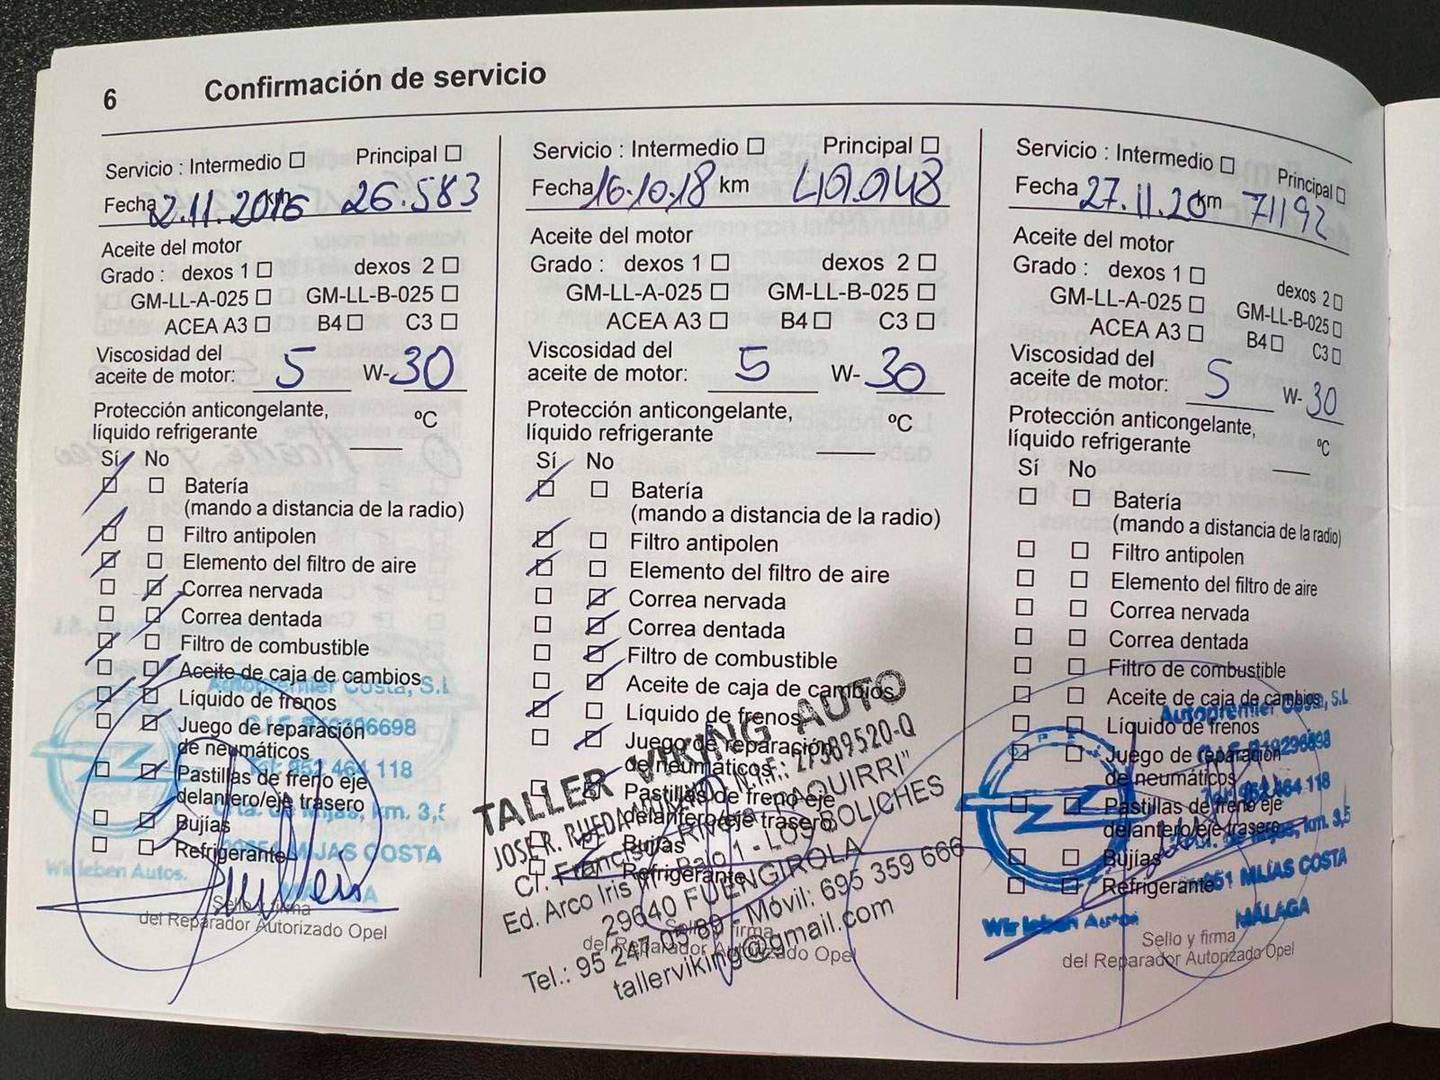 6 Confirmación de servicio
Servicio : Intermedio Principal
Fecha 2.11.2016 km 26.583
Aceite del motor
Grado : dexos 1 dexos 2
GM-LL-A-025 GM-LL-B-025
ACEA A3 B4 C3
Viscosidad del
aceite de motor: 5 W-30
Protección anticongelante,
líquido refrigerante °C
Sí No
Batería
(mando a distancia de la radio)
Filtro antipolen
Elemento del filtro de aire
Correa nervada
Correa dentada
Filtro de combustible
Aceite de caja de cambios
Líquido de frenos
Juego de reparación
de neumáticos
Pastillas de freno eje
delantero/eje trasero
Bujías
Refrigerante
Sello y firma
del Reparador Autorizado Opel
Autopremier Costa, S.L
Tel: 952 464 118
Ctra. de Mijas, km. 3,5
MIJAS COSTA
MÁLAGA
Wir leben Autos.
Servicio : Intermedio Principal
Fecha 16.10.18 km 49.948
Aceite del motor
Grado : dexos 1 dexos 2
GM-LL-A-025 GM-LL-B-025
ACEA A3 B4 C3
Viscosidad del
aceite de motor: 5 W-30
Protección anticongelante,
líquido refrigerante °C
Sí No
Batería
(mando a distancia de la radio)
Filtro antipolen
Elemento del filtro de aire
Correa nervada
Correa dentada
Filtro de combustible
Aceite de caja de cambios
Líquido de frenos
Juego de reparación
de neumáticos
Pastillas de freno eje
delantero/eje trasero
Bujías
Refrigerante
Sello y firma
del Reparador Autorizado Opel
TALLER VIKING AUTO
JOSE R. RUEDA N.I.F.: 27389520-Q
C/. Francisco Rivera "PAQUIRRI"
Ed. Arco Iris Bajo 1 - LOS BOLICHES
29640 FUENGIROLA
Tel.: 95 247 05 69 - Móvil: 695 359 666
tallerviking@gmail.com
Servicio : Intermedio Principal
Fecha 27.11.20 km 71192
Aceite del motor
Grado : dexos 1 dexos 2
GM-LL-A-025 GM-LL-B-025
ACEA A3 B4 C3
Viscosidad del
aceite de motor: 5 W-30
Protección anticongelante,
líquido refrigerante °C
Sí No
Batería
(mando a distancia de la radio)
Filtro antipolen
Elemento del filtro de aire
Correa nervada
Correa dentada
Filtro de combustible
Aceite de caja de cambios
Líquido de frenos
Juego de reparación
de neumáticos
Pastillas de freno eje
delantero/eje trasero
Bujías
Refrigerante
Sello y firma
del Reparador Autorizado Opel
Autopremier Costa, S.L
952 464 118
km. 3,5
MIJAS COSTA
MÁLAGA
Wir leben Autos